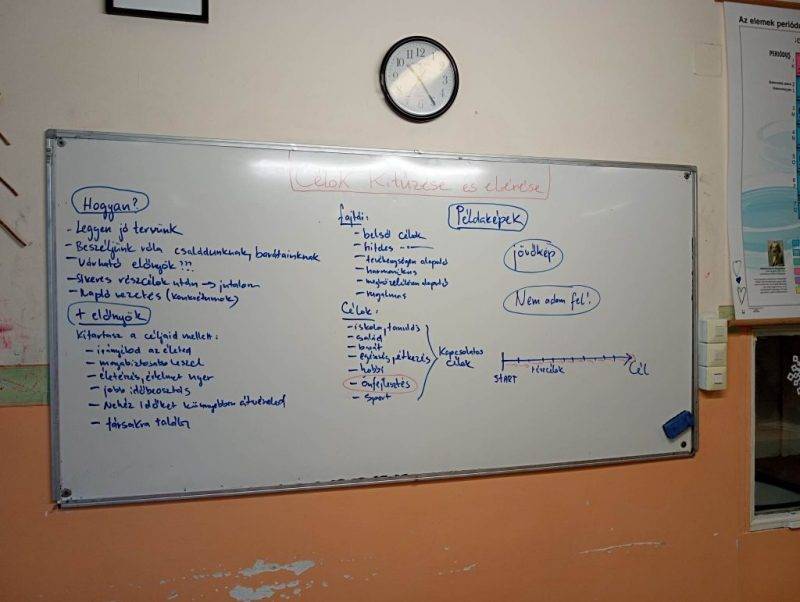 Célok Kitűzése és elérése
Hogyan?
- Legyen jó tervünk
- Beszéljünk róla családdunknak, barátainknak
- Várható előnyök???
- Sikeres részcélok után → jutalom
- Napló vezetés (konkrétumok)
+ előnyök
Kitartasz a céljaid mellett:
- irányítod az életed
- magabiztosabb leszel
- életérzés, értelmet nyer
- jobb időbeosztás
- Nehéz időket könnyebben átvészeled
- társakra találsz
fajtái:
- belső célok
- hiteles
- tevékenységen alapuló
- harmonikus
- megközelítésen alapuló
- rugalmas
Célok:
- iskola, tanulás
- család
- barát
- egészség, étkezés
- hobbi
- önfejlesztés
- sport
Kapcsolatos
célok
Példaképek
jövőkép
Nem adom fel!
START
részcélok
Cél
Az elemek periódu
PERIÓDUS